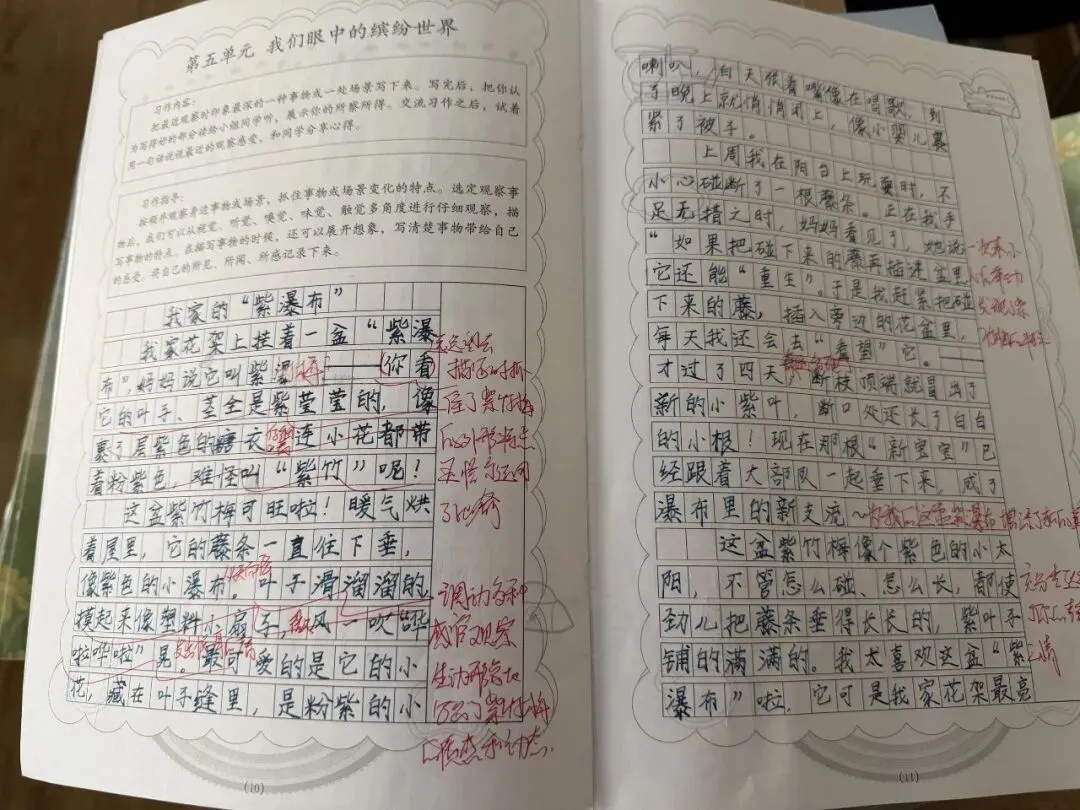 第五单元 我们眼中的缤纷世界
习作内容：
把最近观察时印象最深的一种事物或一处场景写下来。写完后，把你认
为写得好的部分读给小组同学听，展示你的所察所得。交流习作之后，试着
用一句话说说最近的观察感受，和同学分享心得。
习作指导：
按顺序观察身边事物或场景，抓住事物或场景变化的特点。选定观察事
物后，我们可以从视觉、听觉、嗅觉、味觉、触觉多角度进行仔细观察，描
写事物的特点。在描写事物的时候，还可以展开想象，写清楚事物带给自己
的感受。将自己的所见、所闻、所感记录下来。
我家的“紫瀑布”
我家花架上挂着一盆“紫瀑
布”，妈妈说它叫紫 你看
它的叶子、茎全是紫莹莹的，像
裹了层紫色的糖衣 连小花都带
着粉紫色，难怪叫“紫竹”呢！
这盆紫竹梅可旺啦！暖气烘
着屋里，它的藤条一直往下垂，
像紫色的小瀑布。叶子滑溜溜的
摸起来像塑料小扇子，风一吹“哗
啦哗啦”晃。最可爱的是它的小
花，藏在叶子缝里，是粉紫的小
调动多种
感官观察
生动形象地
写出了紫竹梅
静态和动态。
(10)
喇叭，白天张着嘴像在唱歌，到
了晚上就悄悄闭上，像小婴儿裹
紧了被子。
上周我在阳台上玩耍时，不
小心碰断了一根藤条。正在我手
足无措之时，妈妈看见了，她说
“如果把碰下来的藤再插进盆里
它还能“重生”。于是我赶紧把碰
下来的藤，插入旁边的花盆里，
每天我还会去“看望”它。
才过了四天，断枝顶端就冒出了
新的小紫叶，断口处还长了白白
的小根！现在那根“新宝宝”已
经跟着大部队一起垂下来，成了
瀑布里的新支流～
这盆紫竹梅像个紫色的小太
阳，不管怎么碰、怎么长，都使
劲儿把藤条垂得长长的，紫叶子
铺的满满的。我太喜欢这盆“紫
瀑布”啦，它可是我家花架最亮
(11)